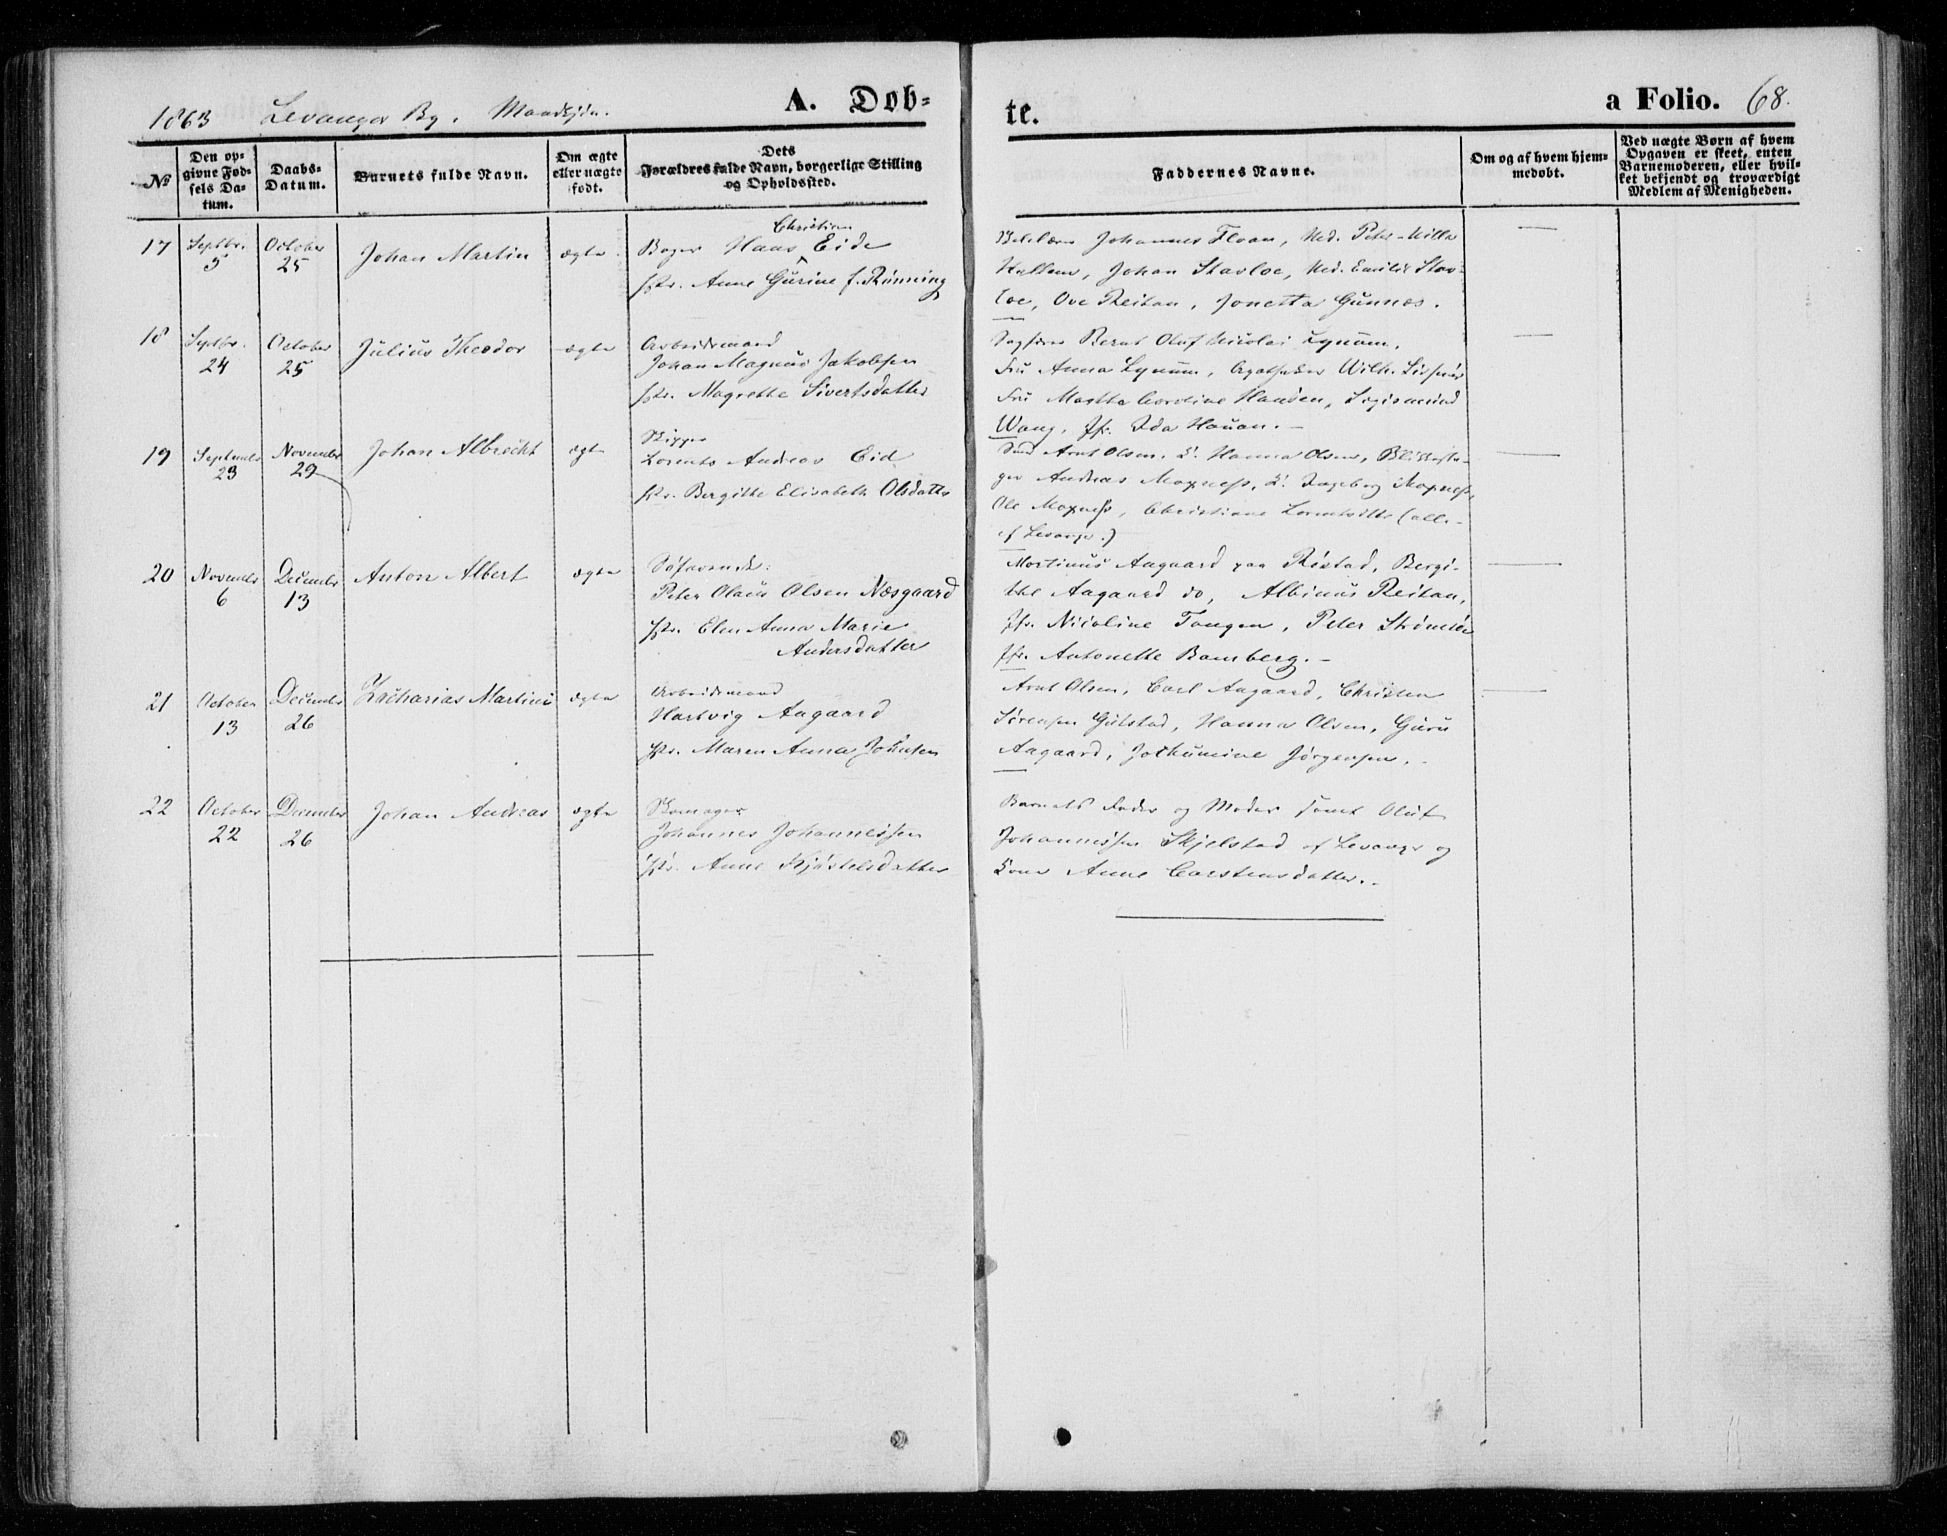 1863 Levanger By. Mandkjøn.
A. Døb-
te.
a Folio. 68.
No
Den op-
givne Fød-
sels Da-
tum.
Daabs-
Datum.
Barnets fulde Navn.
Om ægte
eller uægte
født.
Dets
Forældres fulde Navn, borgerlige Stilling
og Opholdssted.
Faddernes Navne.
Om og af hvem hjem-
medøbt.
Ved uægte Børn af hvem
Opgaven er skeet, enten
Barnemoderen, eller hvil-
ket bekjendt og troværdigt
Medlem af Menigheden.
17 Septbr. 5 October 25 Johan Martin ægte.
Bager Hans Christian Eide
Anne Gurine f. Rønning
Johannes Floan, Md. Peter
Hallem, Johan Stavloe, Md. Emilie Stav-
loe, Ove Reitan, Jonetta Gunnes.
18 Septbr. 24 October 25 Julius Theodor ægte
Arbeidsmand
Johan Magnus Jakobsen
Magrethe Sivertsdatter
Sagfører Bernt Oluf Nicolai Lynum,
Fru Anna Lynum, Apotheker Wilh.
Fru Martha Caroline Sigismund
Wang, Jfr. Ida Hauan.
19 September 23 November 29 Johan Albrecht ægte
Skipper
Lorents Andreas Eid
Bergitte Elisabeth Olsdatter
Arnt Olsen, K. Hanna Olsen,
Andreas Moxness, K. Ingeborg Moxness,
Ole Moxness, Christiane (alle
af Levanger.)
20 November 6 December 13 Anton Albert ægte
Peter Olaus Olsen Næsgaard
Elen Anna Marie
Andersdatter
Martinus Aagaard paa Røstad, Bergi-
the Aagaard do, Albinus Reitan,
Jfr. Nicoline Tangen, Peter
Jfr. Antonette Bamberg.
21 October 13 December 26 Zacharias Martin ægte
Arbeidsmand
Hartvig Aagaard
Maren Anna Johnsen
Arnt Olsen, Carl Aagaard, Christen
Sørensen Gulstad, Hanna Olsen, Guru
Aagaard, Jørgensen.
22 October 22 December 26 Johan Andreas ægte
Skomager
Johannes Johannessen
Anne Kjøstelsdatter
Barnets Fader og Moder samt Oluf
Johannessen Skjelstad af Levanger og
Kone Anne Carstensdatter.